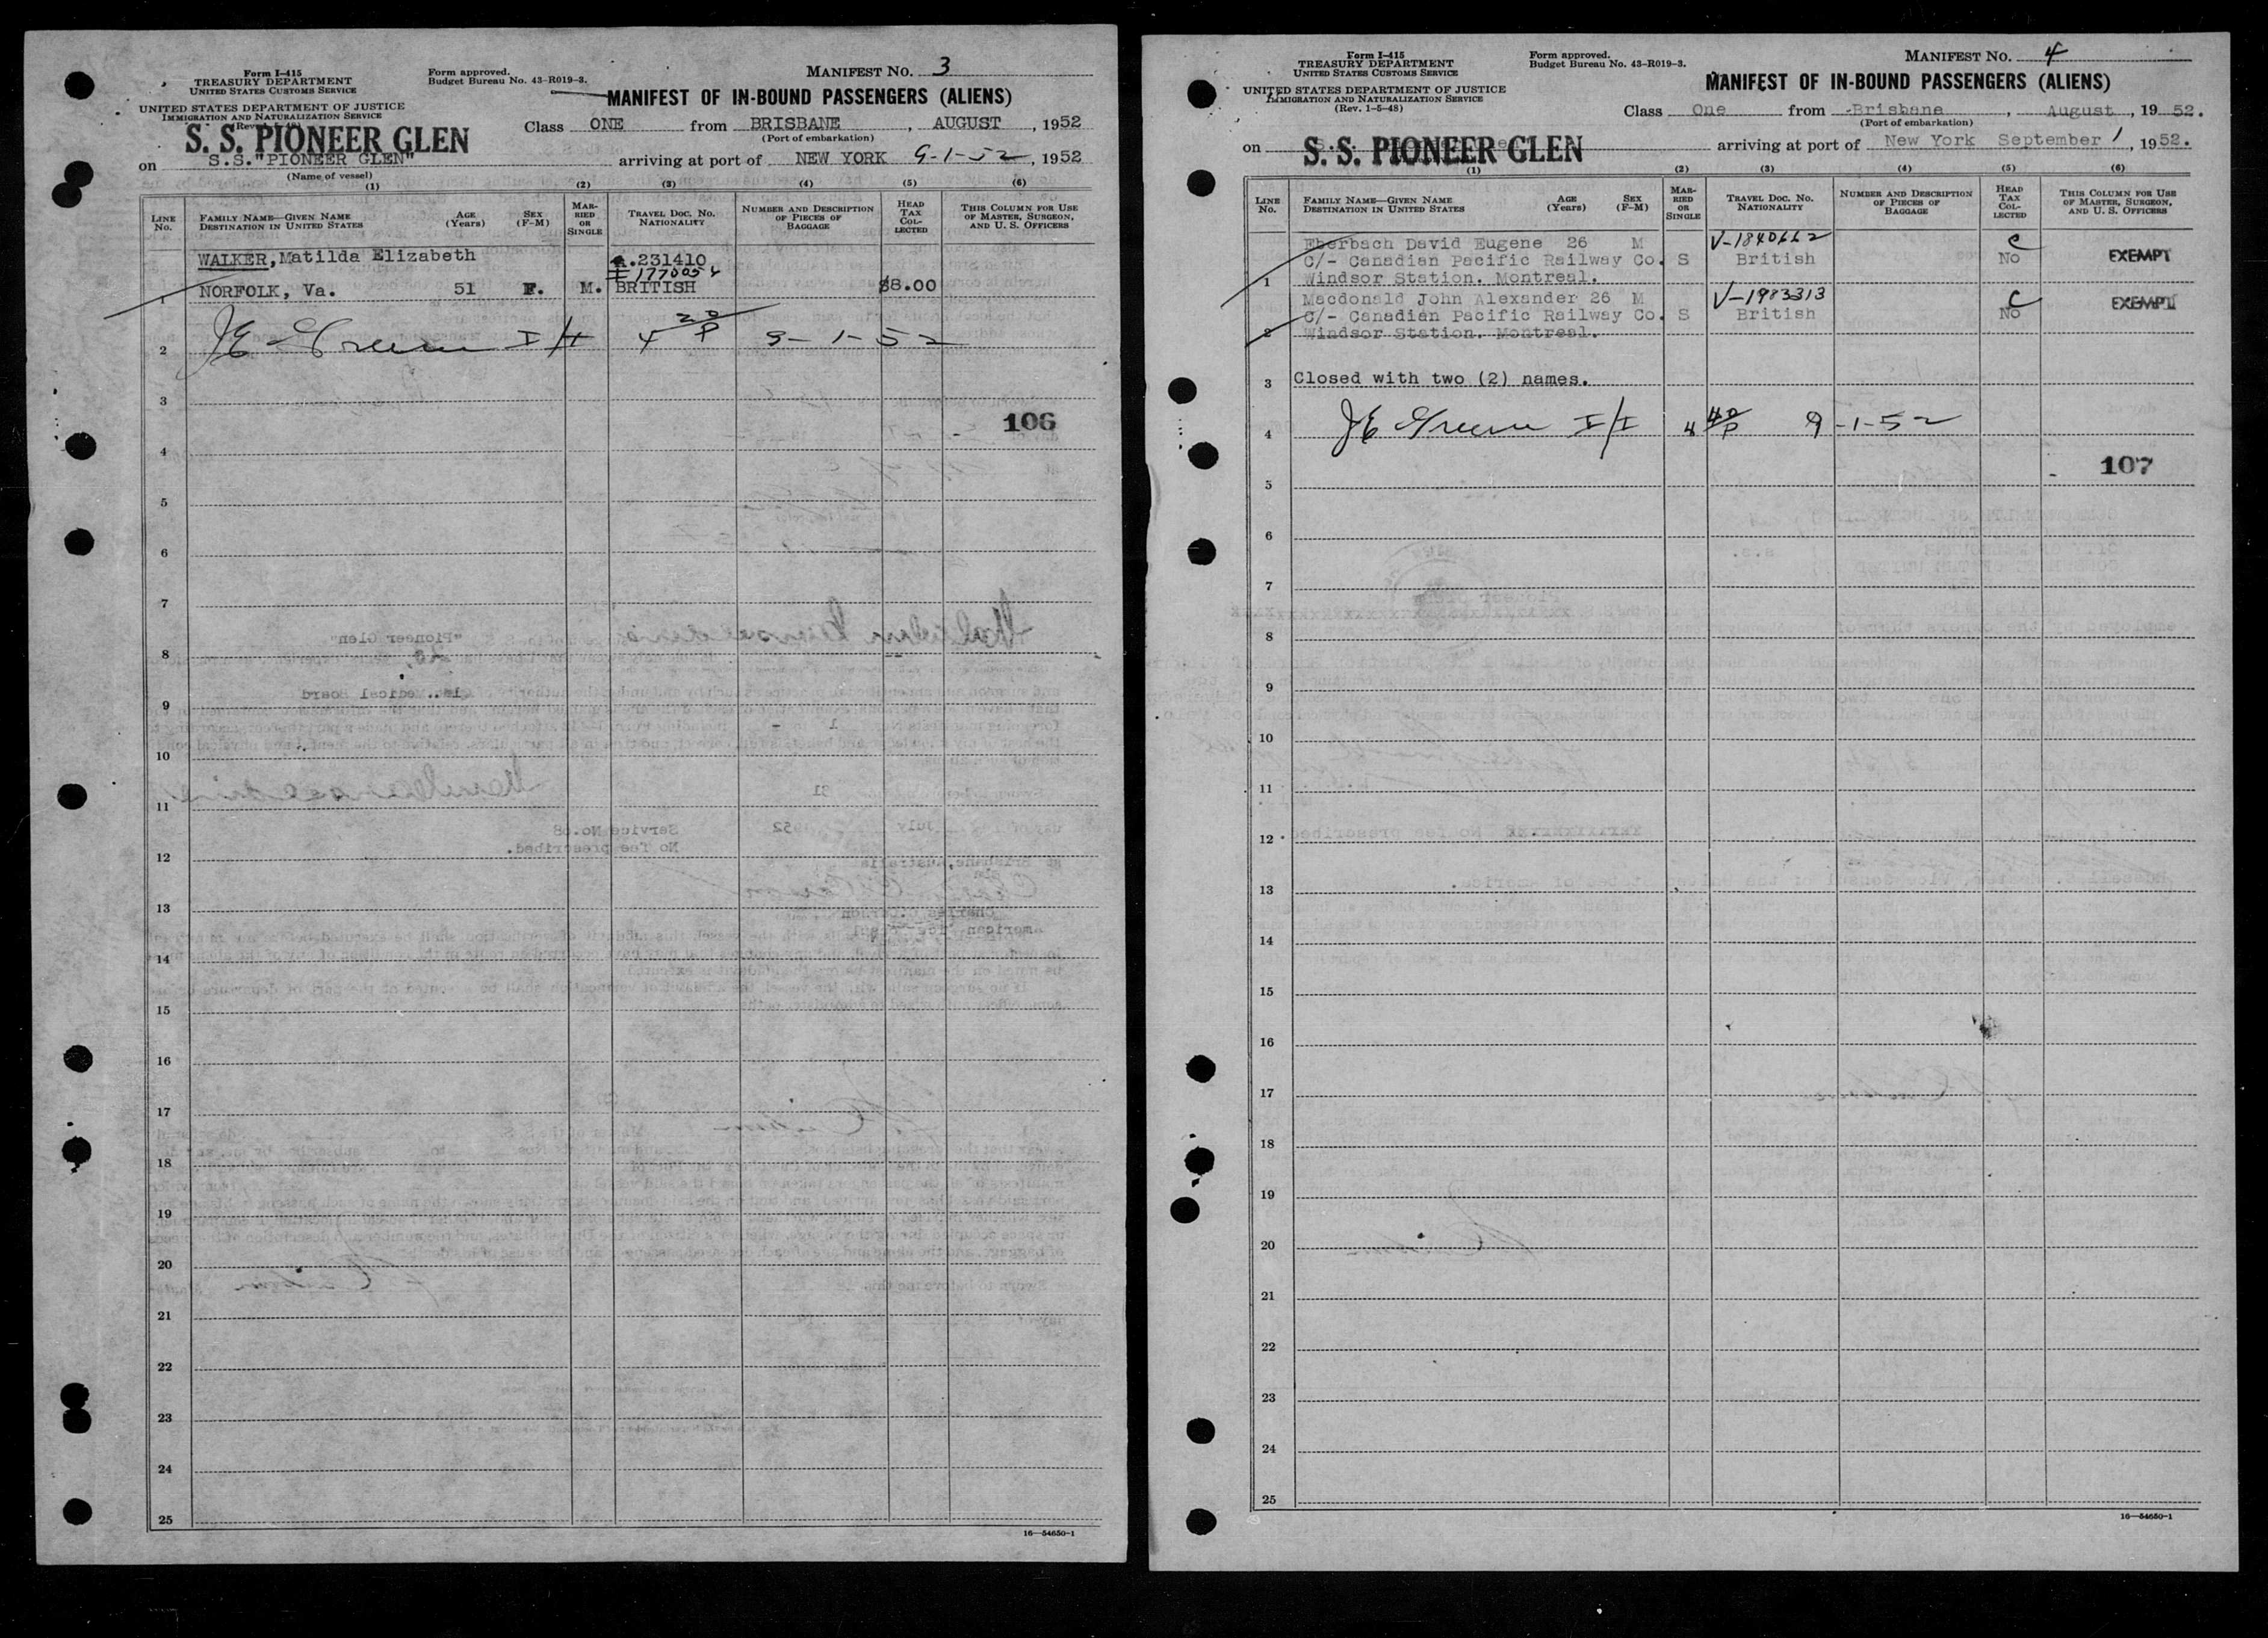 Form I-415
TREASURY DEPARTMENT
UNITED STATES CUSTOMS SERVICE
UNITED STATES DEPARTMENT OF JUSTICE
IMMIGRATION AND NATURALIZATION SERVICE
(Rev. 1-5-48)
Form approved.
Budget Bureau No. 43-R019-3.
MANIFEST NO. 3
MANIFEST OF IN-BOUND PASSENGERS (ALIENS)
Class ONE from BRISBANE, AUGUST, 1952
(Port of embarkation)
S. S. PIONEER GLEN
on S.S."PIONEER GLEN" arriving at port of NEW YORK 9-1-52, 1952
(Name of vessel)
(1) (2) (3) (4) (5) (6)
LINE No. FAMILY NAME—GIVEN NAME DESTINATION IN UNITED STATES AGE (Years) SEX (F-M) MARRIED OR SINGLE TRAVEL DOC. NO. NATIONALITY NUMBER AND DESCRIPTION OF PIECES OF BAGGAGE HEAD TAX COLLECTED THIS COLUMN FOR USE OF MASTER, SURGEON, AND U. S. OFFICERS
WALKER, Matilda Elizabeth .231410
1 NORFOLK, Va. 51 F. M. BRITISH $8.00
2 JE Green I/I 4 20 P 9-1-52
3
106
4
5
6
7
8
9
10
11
12
13
14
15
16
17
18
19
20
21
22
23
24
25
16—54650-1
Form I-415
TREASURY DEPARTMENT
UNITED STATES CUSTOMS SERVICE
UNITED STATES DEPARTMENT OF JUSTICE
IMMIGRATION AND NATURALIZATION SERVICE
(Rev. 1-5-48)
Form approved.
Budget Bureau No. 43-R019-3.
MANIFEST NO. 4
MANIFEST OF IN-BOUND PASSENGERS (ALIENS)
Class One from Brisbane, August, 1952.
(Port of embarkation)
on S. S. PIONEER GLEN arriving at port of New York September 1, 1952.
(1) (2) (3) (4) (5) (6)
LINE No. FAMILY NAME—GIVEN NAME DESTINATION IN UNITED STATES AGE (Years) SEX (F-M) MARRIED OR SINGLE TRAVEL DOC. NO. NATIONALITY NUMBER AND DESCRIPTION OF PIECES OF BAGGAGE HEAD TAX COLLECTED THIS COLUMN FOR USE OF MASTER, SURGEON, AND U. S. OFFICERS
Eberbach David Eugene 26 M V-1840662 C
C/- Canadian Pacific Railway Co. S British No EXEMPT
1 Windsor Station. Montreal.
Macdonald John Alexander 26 M V-1983313 C EXEMPT
C/- Canadian Pacific Railway Co. S British No
2 Windsor Station. Montreal.
3 Closed with two (2) names.
4 JE Green I/I 4 P 9-1-52
107
5
6
7
8
9
10
11
12
13
14
15
16
17
18
19
20
21
22
23
24
25
16—54650-1